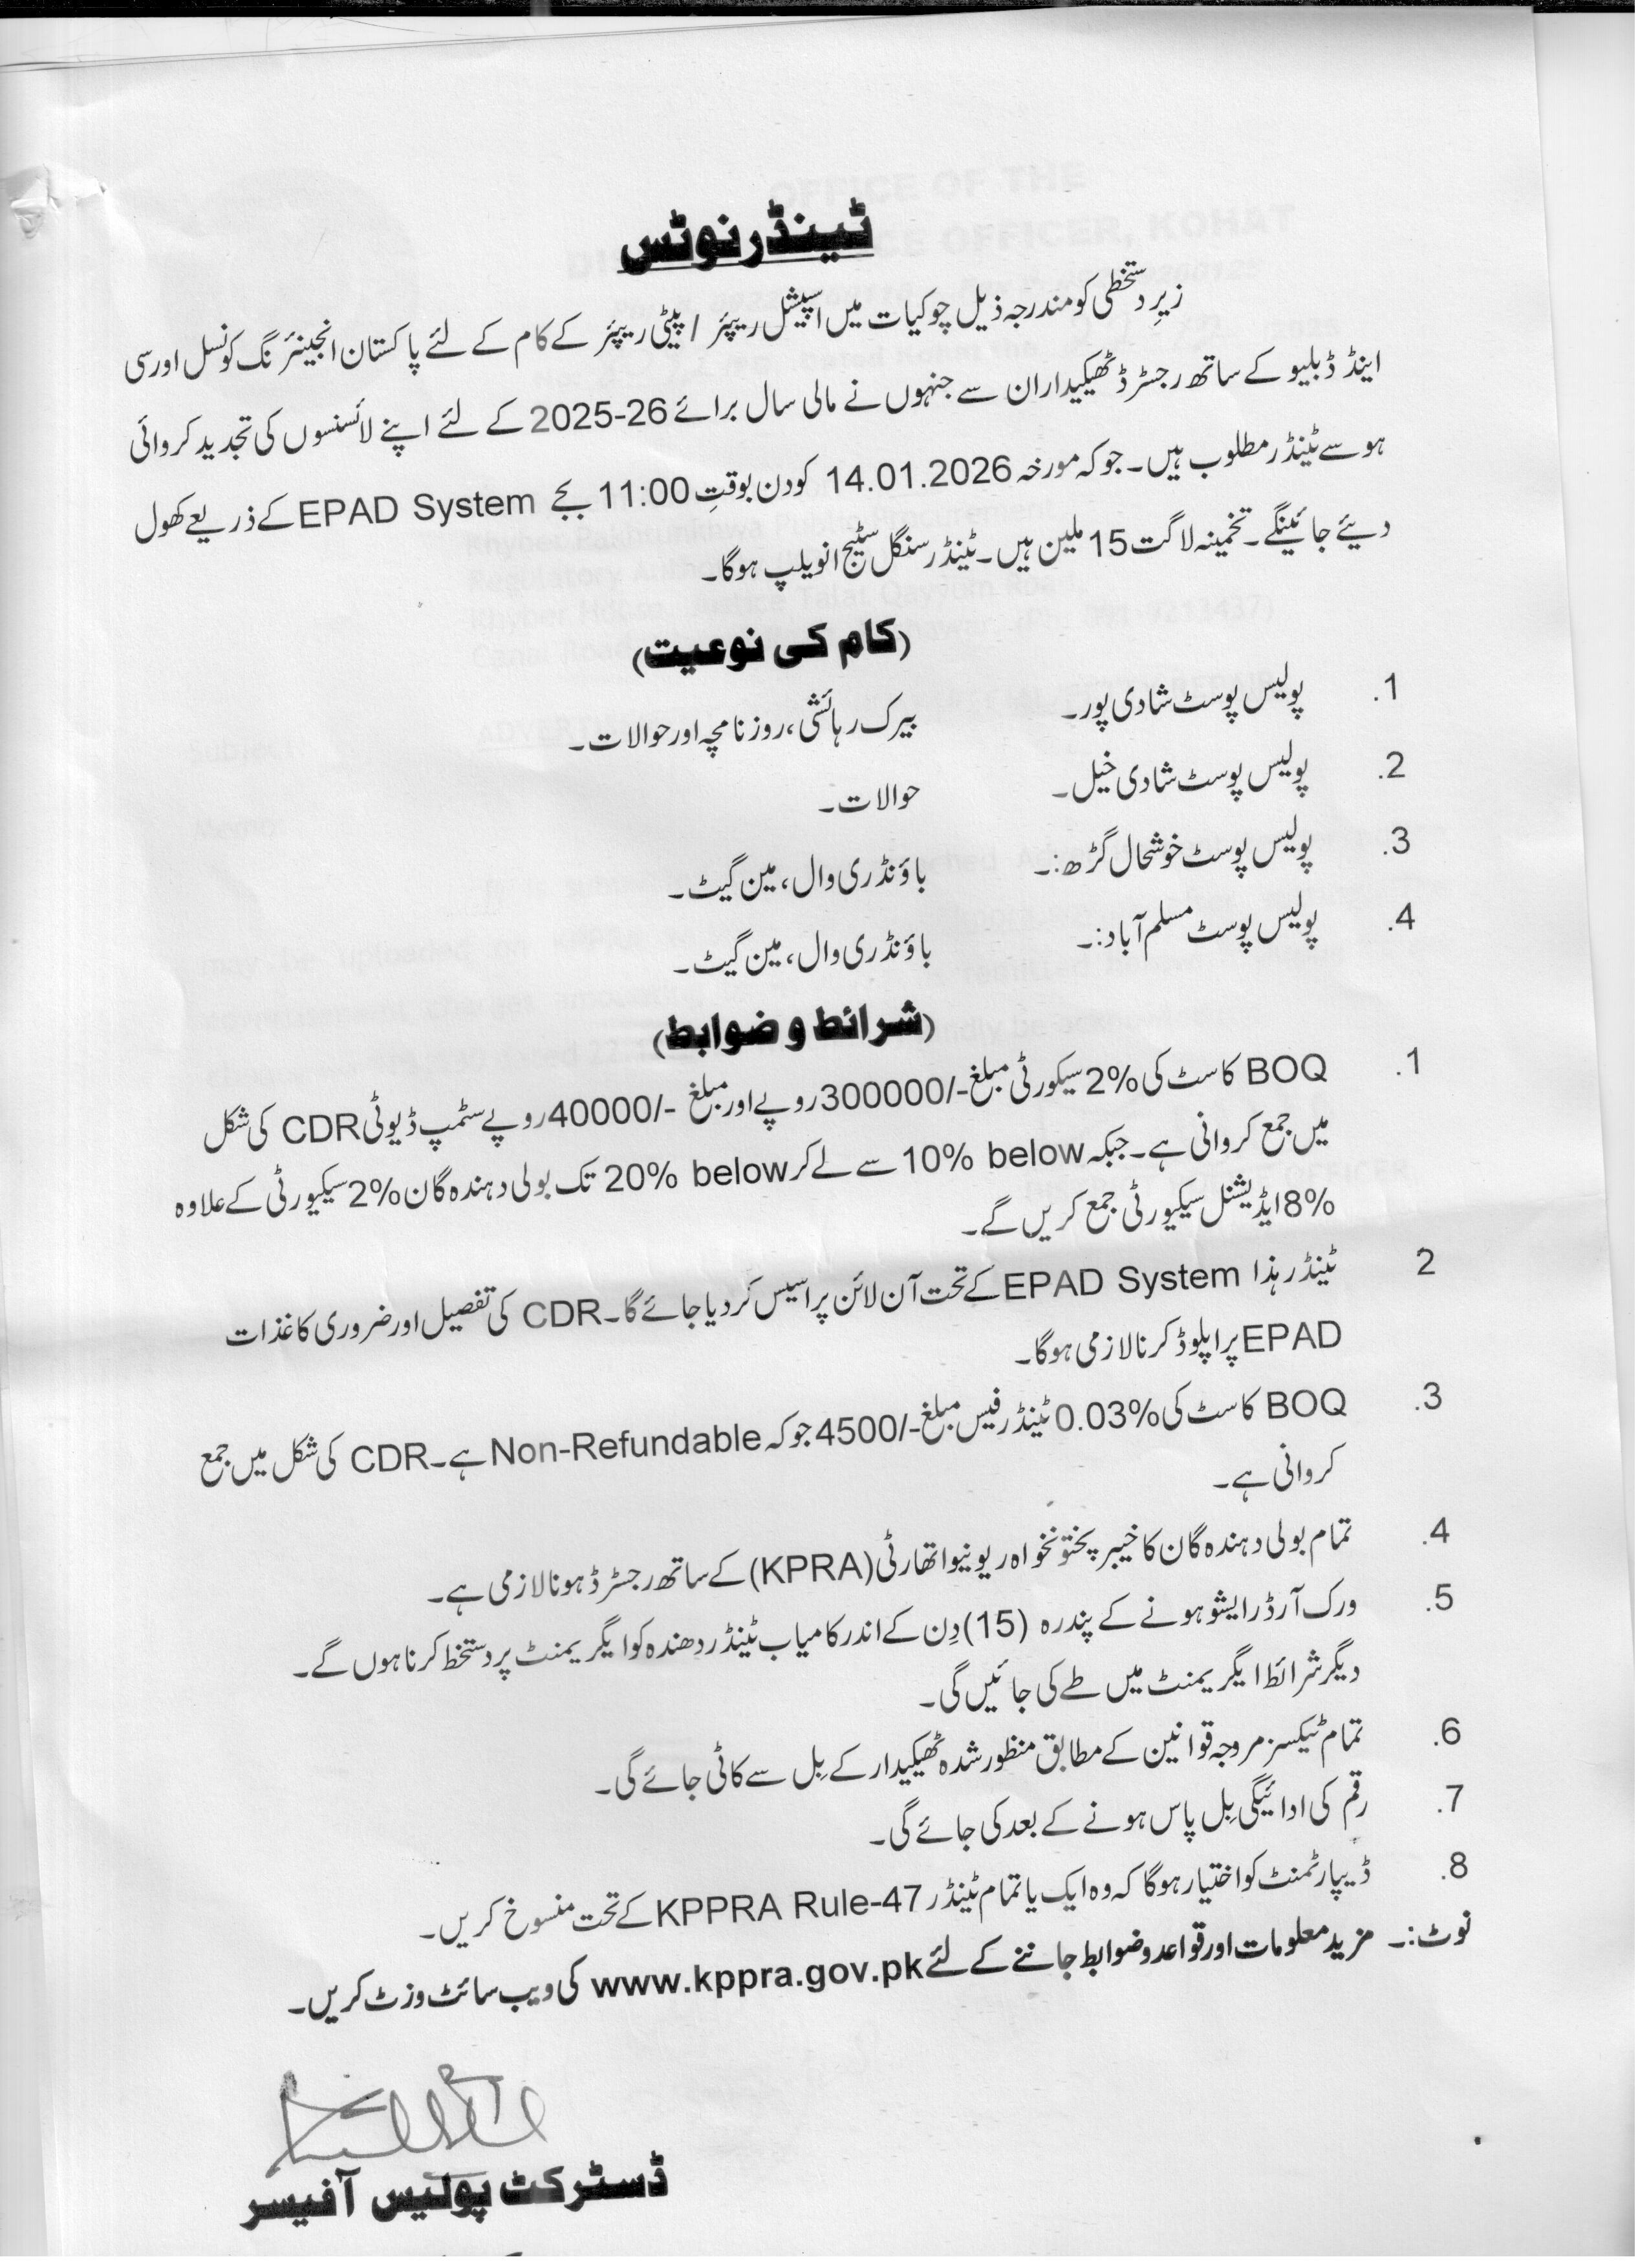 ٹینڈر نوٹس
زیرِ دستخطی کو مندرجہ ذیل چوکیات میں اسپیشل ریپئر / پیٹی ریپئر کے کام کے لئے پاکستان انجینئرنگ کونسل اور سی
اینڈ ڈبلیو کے ساتھ رجسٹرڈ ٹھیکیداران سے جنہوں نے مالی سال برائے 2025-26 کے لئے اپنے لائسنسوں کی تجدید کروائی
ہو سے ٹینڈر مطلوب ہیں۔ جو کہ مورخہ 14.01.2026 کو دن بوقتِ 11:00 بجے EPAD System کے ذریعے کھول
دیئے جائینگے۔ تخمینہ لاگت 15 ملین ہیں۔ ٹینڈر سنگل سٹیج انویلپ ہوگا۔
(کام کی نوعیت)
1. پولیس پوسٹ شادی پور۔ بیرک رہائشی، روزنامچہ اور حوالات۔
2. پولیس پوسٹ شادی خیل۔ حوالات۔
3. پولیس پوسٹ خوشحال گڑھ:۔ باؤنڈری وال، مین گیٹ۔
4. پولیس پوسٹ مسلم آباد:۔ باؤنڈری وال، مین گیٹ۔
(شرائط و ضوابط)
1. BOQ کاسٹ کی 2% سیکورٹی مبلغ -/300000 روپے اور مبلغ -/40000 روپے سٹمپ ڈیوٹی CDR کی شکل
میں جمع کروانی ہے۔ جبکہ 10% below سے لے کر 20% below تک بولی دہندہ گان 2% سیکیورٹی کے علاوہ
8% ایڈیشنل سیکیورٹی جمع کریں گے۔
2 ٹینڈر ہذا EPAD System کے تحت آن لائن پراسیس کر دیا جائے گا۔ CDR کی تفصیل اور ضروری کاغذات
EPAD پر اپلوڈ کرنا لازمی ہوگا۔
3. BOQ کاسٹ کی 0.03% ٹینڈر فیس مبلغ -/4500 جو کہ Non-Refundable ہے۔ CDR کی شکل میں جمع
کروانی ہے۔
4. تمام بولی دہندہ گان کا خیبر پختونخواہ ریونیو اتھارٹی (KPRA) کے ساتھ رجسٹرڈ ہونا لازمی ہے۔
5. ورک آرڈر ایشو ہونے کے پندرہ (15) دِن کے اندر کامیاب ٹینڈر دھندہ کو ایگریمنٹ پر دستخط کرنا ہوں گے۔
دیگر شرائط ایگریمنٹ میں طے کی جائیں گی۔
6. تمام ٹیکسز مروجہ قوانین کے مطابق منظور شدہ ٹھیکیدار کے بِل سے کاٹی جائے گی۔
7. رقم کی ادائیگی بِل پاس ہونے کے بعد کی جائے گی۔
8. ڈیپارٹمنٹ کو اختیار ہوگا کہ وہ ایک یا تمام ٹینڈر KPPRA Rule-47 کے تحت منسوخ کریں۔
نوٹ:۔ مزید معلومات اور قواعد و ضوابط جاننے کے لئے www.kppra.gov.pk کی ویب سائٹ وزٹ کریں۔
ڈسٹرکٹ پولیس آفیسر